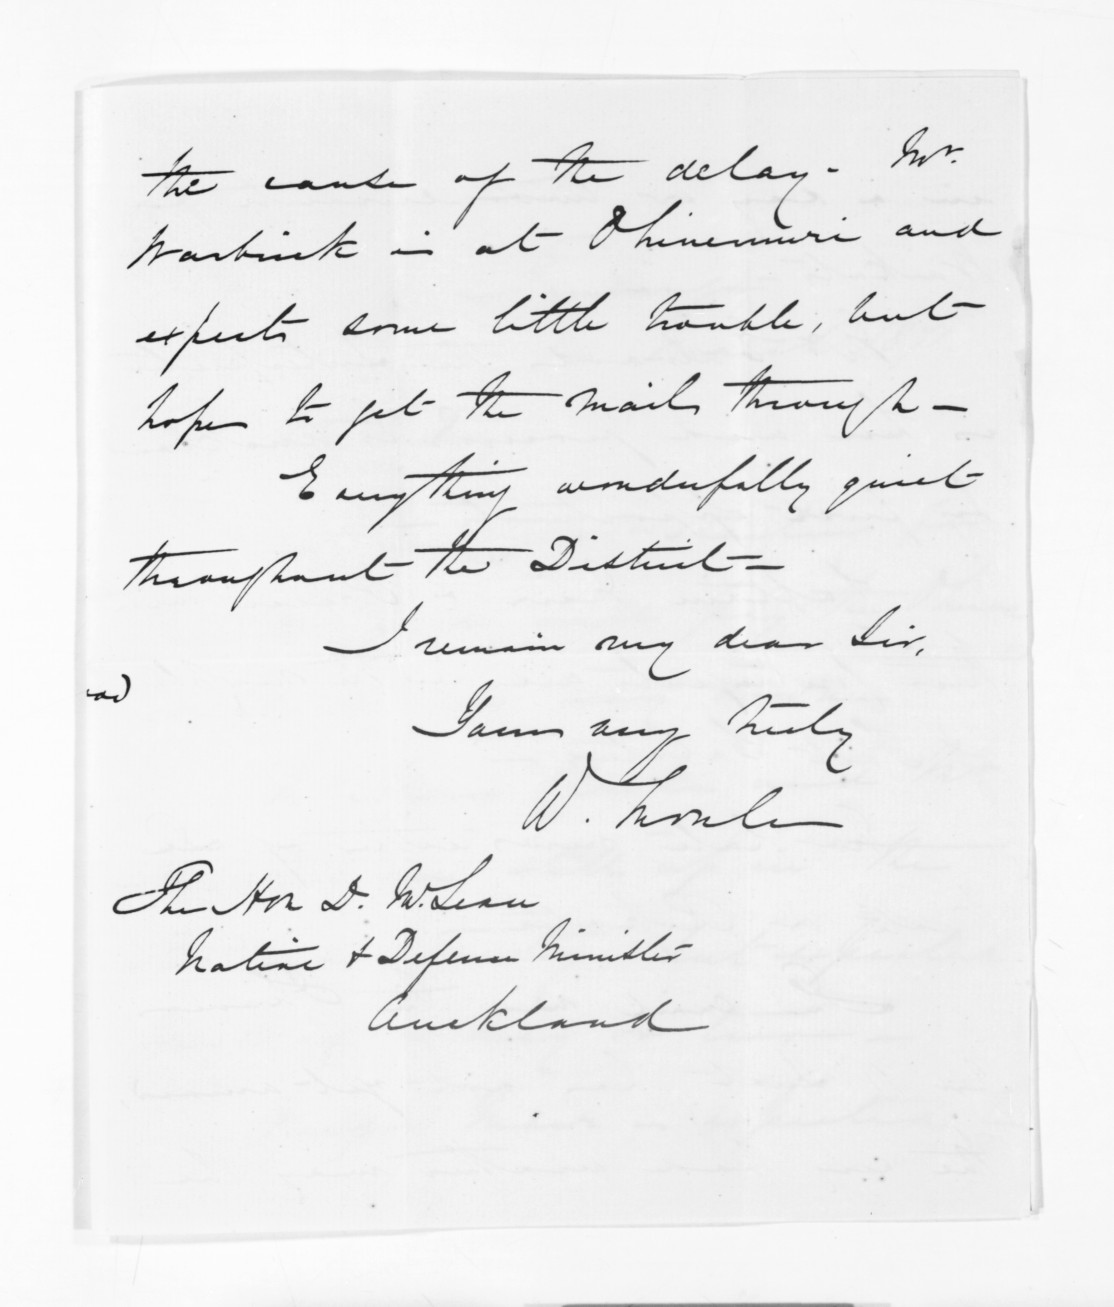 the cause of the delay - Mr.
Warbrick is at Ohinemuri and
expects some little trouble, but
hopes to get the mails through -
Everything wonderfully quiet
throughout the District -
I remain my dear Sir,
Yours very truly
W. Moule
The Hon D. McLean
Native & Defense Minister
Auckland